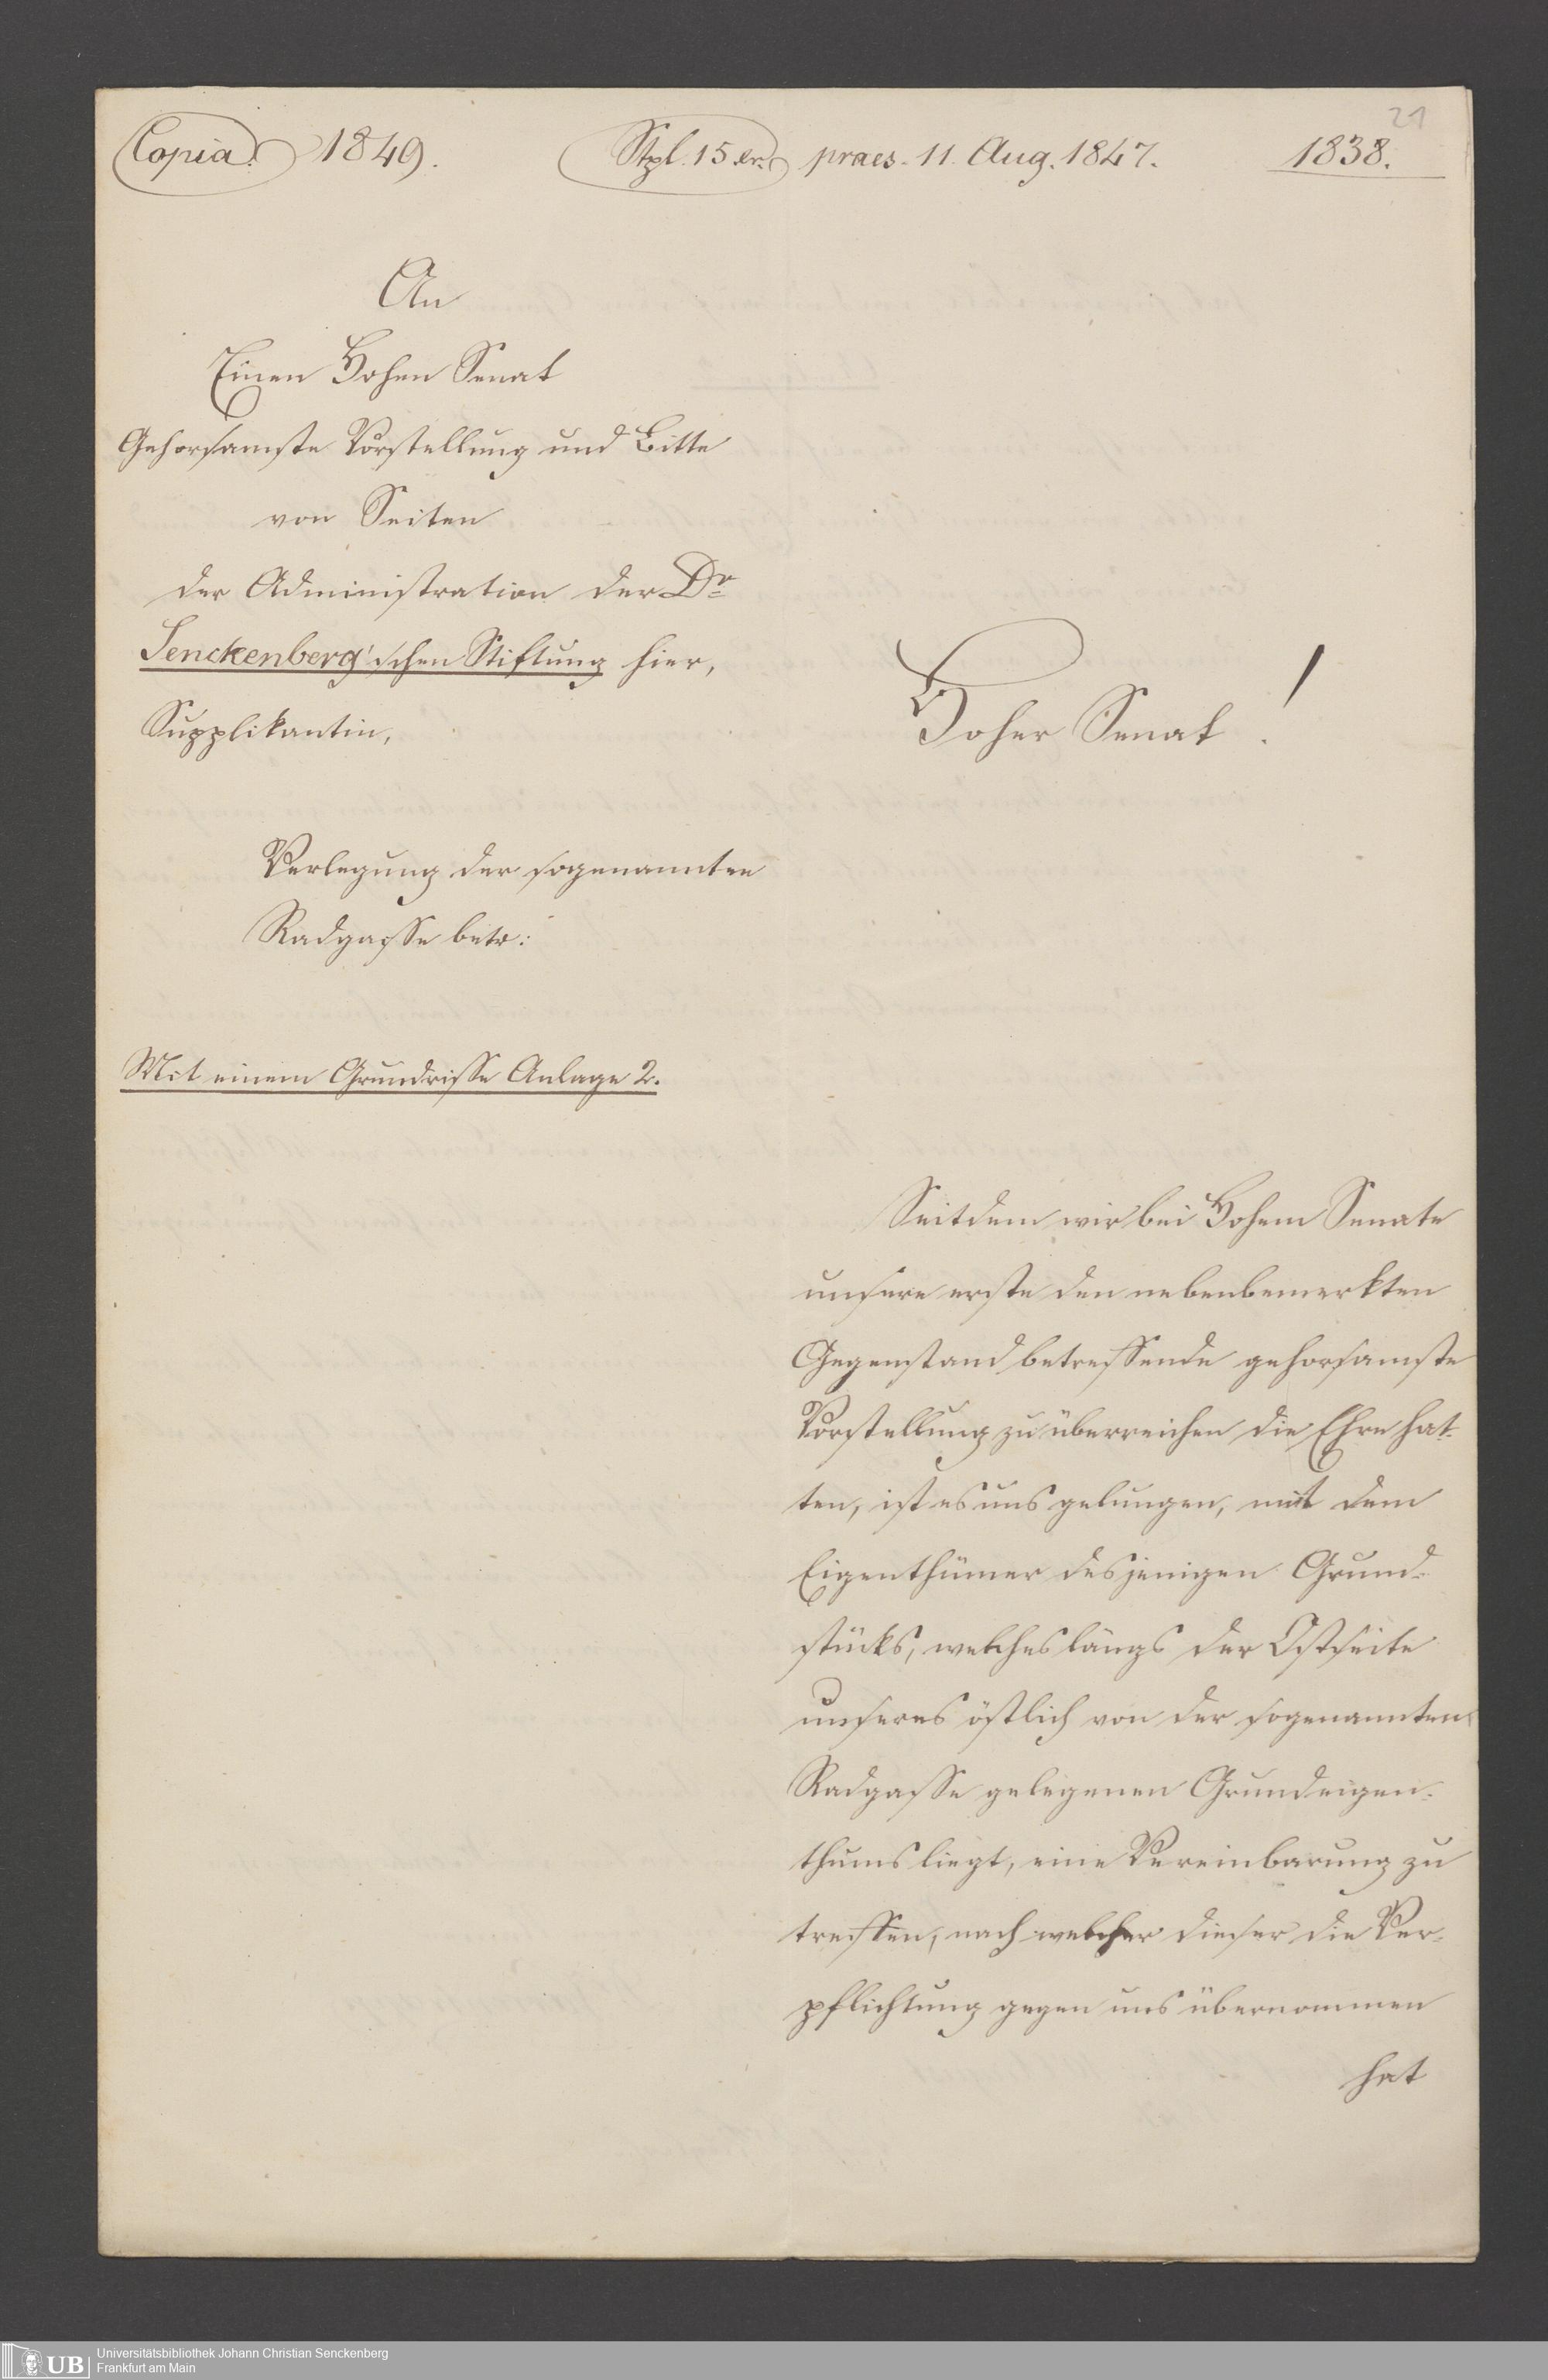 21
Copia. 1849. Stpl. 15 xr. praes. 11. Aug. 1847. 1838.
An
Einen Hohen Senat
Gehorsamste Vorstellung und Bitte
von Seiten
der Administration der Dr
Senckenberg'schen Stiftung hier,
Supplikantin,
Hoher Senat!
Verlegung der sogenannten
Radgasse betr:
Mit einem Grundrisse Anlage 2.
Seitdem wir bei Hohem Senate
unsere erste den nebenbemerkten
Gegenstand betreffende gehorsamste
Vorstellung zu überreichen die Ehre hat-
ten, ist es uns gelungen, mit dem
Eigenthümer desjenigen Grund-
stücks, welches längs der Ostseite
unseres östlich von der sogenannten
Radgasse gelegenen Grundeigen-
thums liegt, eine Vereinbarung zu
treffen, nach welcher dieser die Ver-
pflichtung gegen uns übernommen
hat
UB
Universitätsbibliothek Johann Christian Senckenberg
Frankfurt am Main